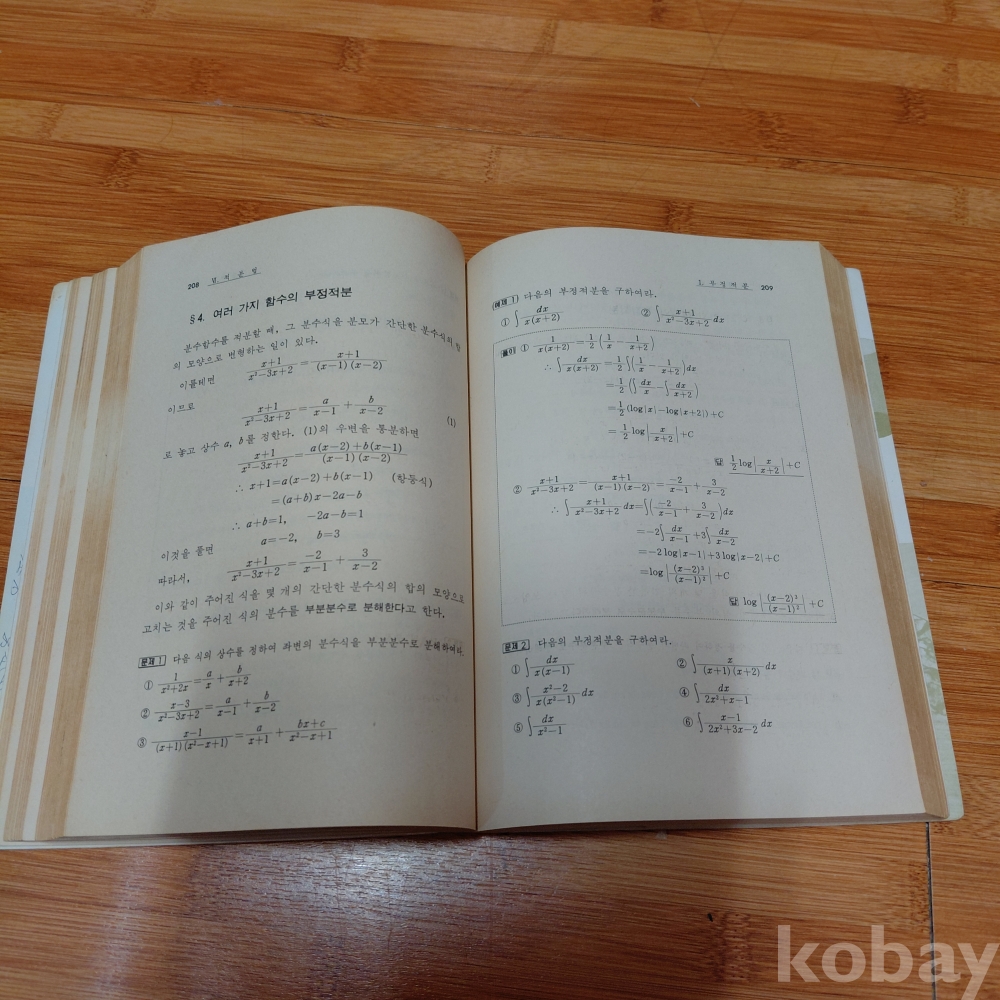 208
§4. 여러 가지 함수의 부정적분
분수함수를 적분할 때, 그 분수식을 분모가 간단한 분수식의 합
의 모양으로 변형하는 일이 있다.
이를테면 (x+1)/(x²−3x+2) = (x+1)/((x−1)(x−2))
이므로 (x+1)/(x²−3x+2) = a/(x−1) + b/(x−2) (1)
로 놓고 상수 a, b를 정한다. (1)의 우변을 통분하면
(x+1)/(x²−3x+2) = (a(x−2)+b(x−1))/((x−1)(x−2))
∴ x+1=a(x−2)+b(x−1) (항등식)
=(a+b)x−2a−b
∴ a+b=1, −2a−b=1
이것을 풀면 a=−2, b=3
따라서, (x+1)/(x²−3x+2) = −2/(x−1) + 3/(x−2)
이와 같이 주어진 식을 몇 개의 간단한 분수식의 합의 모양으로
고치는 것을 주어진 식의 분수를 부분분수로 분해한다고 한다.
문제 1 다음 식의 상수를 정하여 좌변의 분수식을 부분분수로 분해하여라.
① 1/(x²+2x) = a/x + b/(x+2)
② (x−3)/(x²−3x+2) = a/(x−1) + b/(x−2)
③ (x−1)/((x+1)(x²−x+1)) = a/(x+1) + (bx+c)/(x²−x+1)
부정적분 209
예제 1 다음의 부정적분을 구하여라.
① ∫dx/(x(x+2)) ② ∫(x+1)/(x²−3x+2) dx
풀이 ① 1/(x(x+2)) = 1/2 (1/x − 1/(x+2))
∴ ∫dx/(x(x+2)) = 1/2 ∫(1/x − 1/(x+2))dx
= 1/2 (∫dx/x − ∫dx/(x+2))
= 1/2 (log|x|−log|x+2|)+C
= 1/2 log|x/(x+2)|+C
답 1/2 log|x/(x+2)|+C
② (x+1)/(x²−3x+2) = (x+1)/((x−1)(x−2)) = −2/(x−1) + 3/(x−2)
∴ ∫(x+1)/(x²−3x+2) dx=∫(−2/(x−1) + 3/(x−2))dx
=−2∫dx/(x−1) +3∫dx/(x−2)
=−2log|x−1|+3log|x−2|+C
=log|(x−2)³/(x−1)²|+C
답 log|(x−2)³/(x−1)²|+C
문제 2 다음의 부정적분을 구하여라.
① ∫dx/(x(x−1)) ② ∫x/((x+1)(x+2)) dx
③ ∫(x²−2)/(x(x²−1)) dx ④ ∫dx/(2x²+x−1)
⑤ ∫dx/(x²−1) ⑥ ∫(x−1)/(2x²+3x−2) dx
kobay